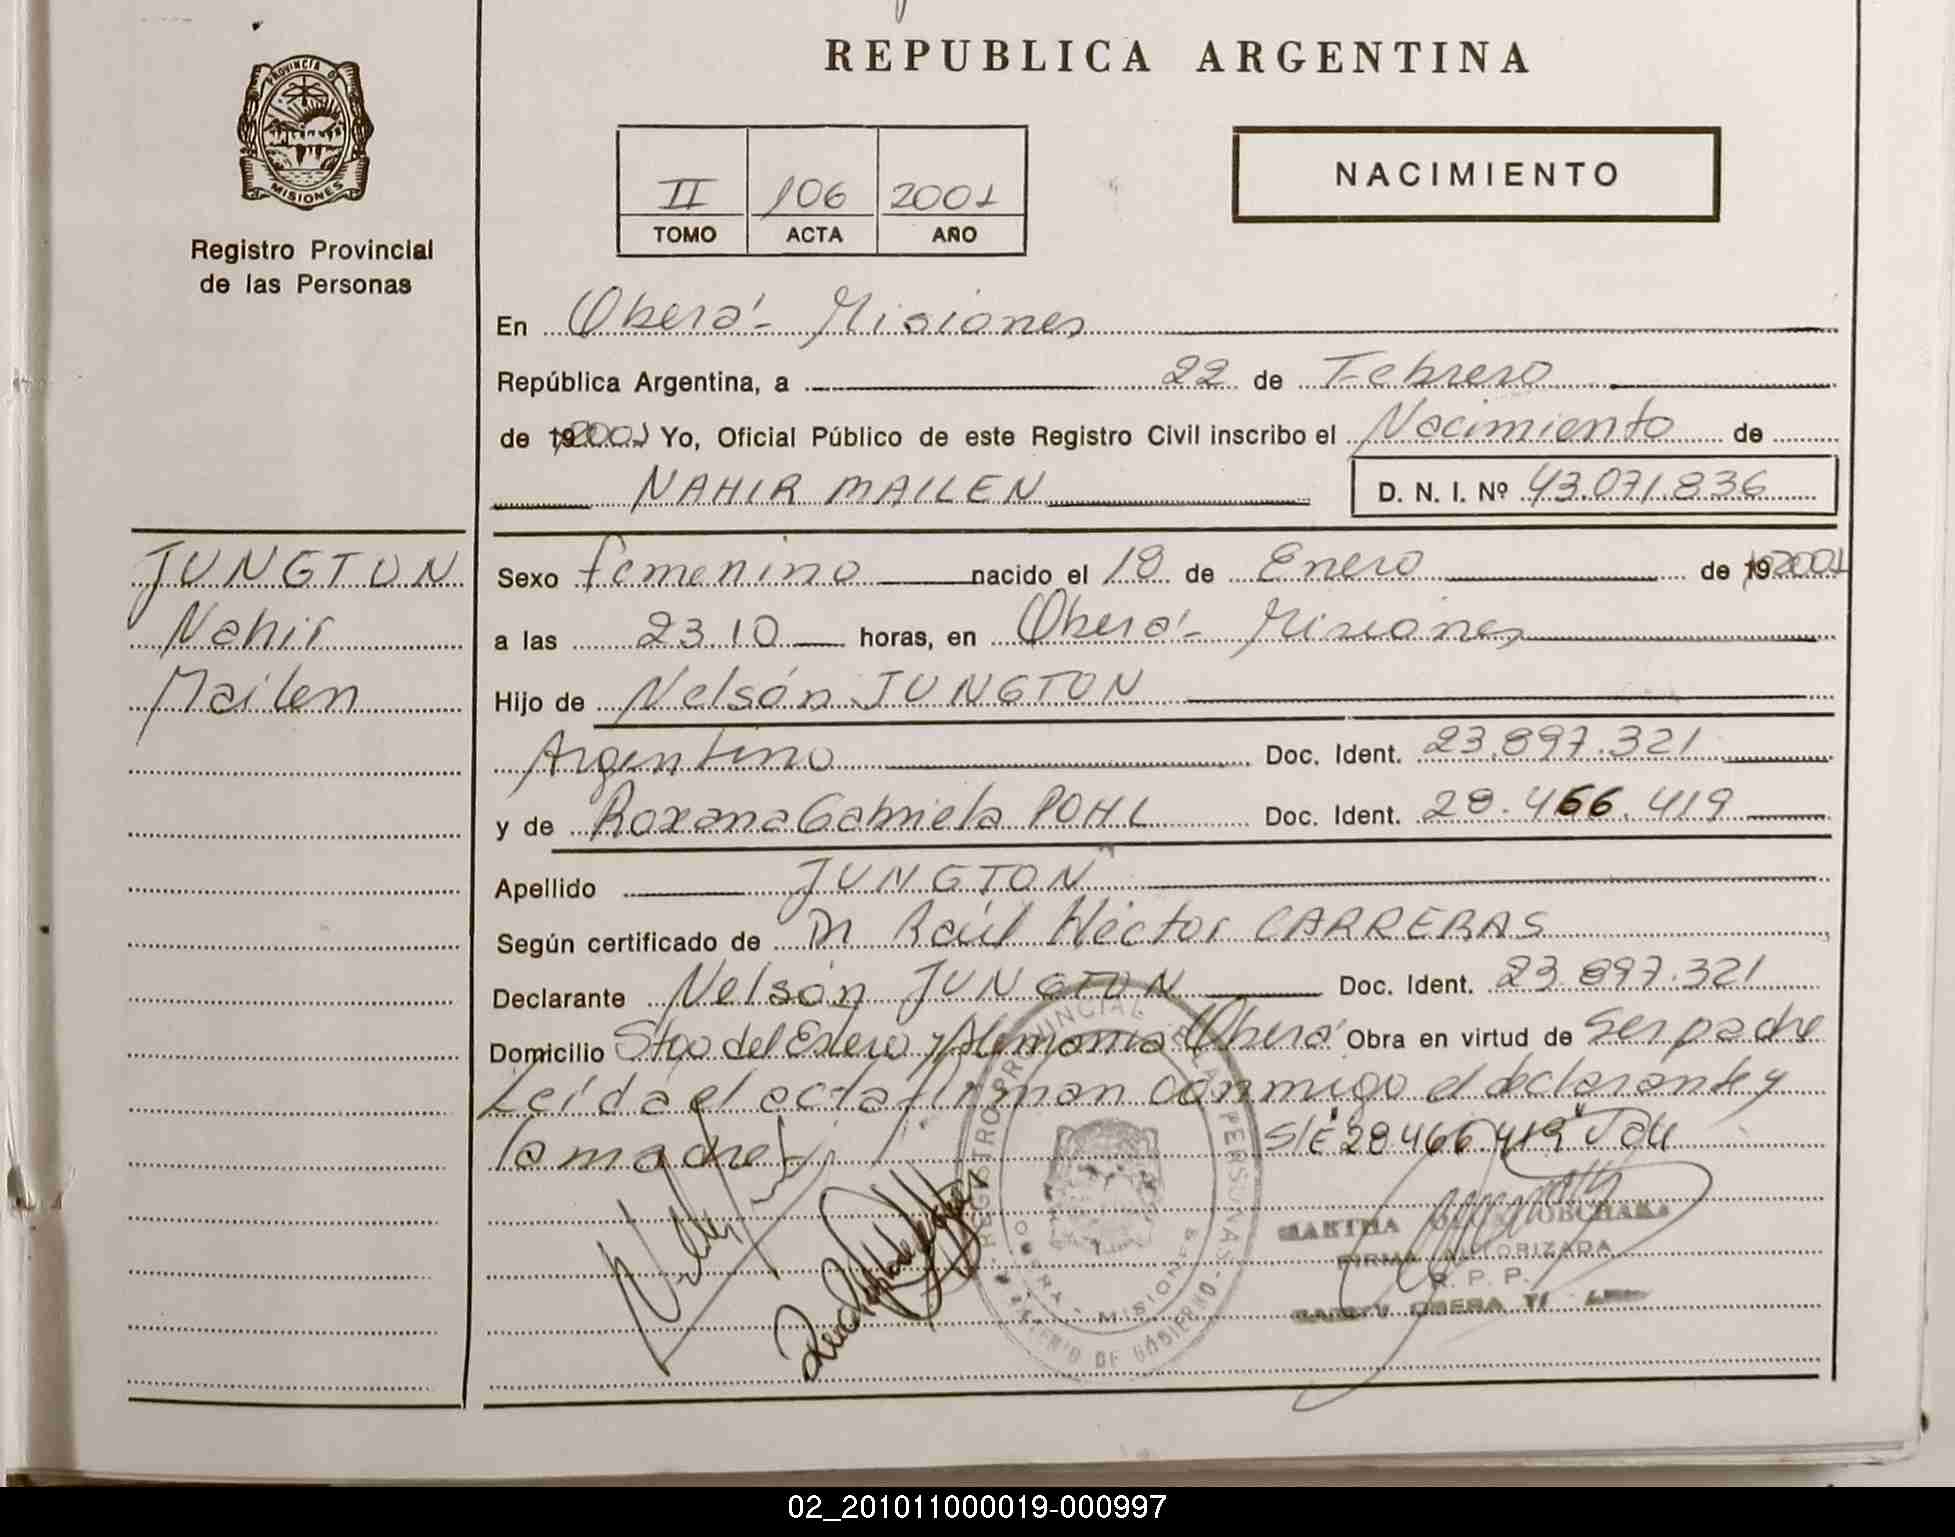 REPUBLICA ARGENTINA
PROVINCIA D
MISIONES
Registro Provincial
de las Personas
II 106 2001
TOMO ACTA AÑO
NACIMIENTO
En Oberá - Misiones
República Argentina, a 22 de Febrero
de 19 2001 Yo, Oficial Público de este Registro Civil inscribo el Nacimiento de
NAHIR MAILEN D. N. I. Nº 43.071.836
JUNGTON
Nahir
Mailen
Sexo femenino nacido el 18 de Enero de 19 2001
a las 23.10 horas, en Oberá - Misiones
Hijo de Nelsón JUNGTON
Argentino Doc. Ident. 23.897.321
y de Roxana Gabriela POHL Doc. Ident. 28.466.419
Apellido JUNGTON
Según certificado de Dr Raúl Héctor CARRERAS
Declarante Nelsón JUNGTON Doc. Ident. 23.897.321
Domicilio Stgo del Estero y Alemania Oberá Obra en virtud de Ser padre
Leída el acta firman conmigo el declarante y
la madre S/E "28.466.419" Vale
REGISTRO PROVINCIAL DE LAS PERSONAS
MINISTERIO DE GOBIERNO
OBERA - MISIONES
MARTHA
FIRMA AUTORIZADA
R. P. P.
OBERA
02_201011000019-000997